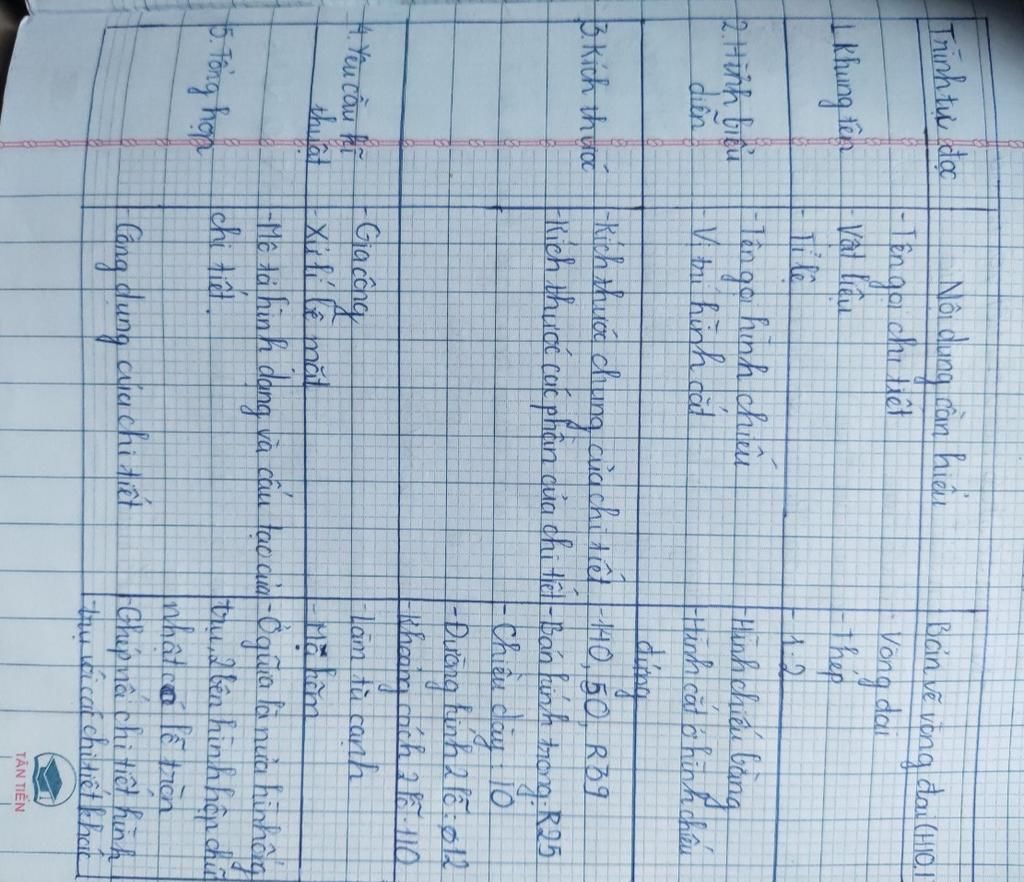 Trình tự đọc
Nội dung cần hiểu
Bản vẽ vòng đai (H10.1
1. Khung tên
- Tên gọi chi tiết
- Vật liệu
- Tỉ lệ
- Vòng đai
- Thép
- 1:2
2. Hình biểu
diễn
- Tên gọi hình chiếu
- Vị trí hình cắt
- Hình chiếu bằng
- Hình cắt ở hình chiếu
đứng
3. Kích thước
- Kích thước chung của chi tiết
- Kích thước các phần của chi tiết
- 140, 50, R39
- Bán kính trong: R25
- Chiều dày: 10
- Đường kính 2 lỗ: ø12
- Khoảng cách 2 lỗ: 110
4. Yêu cầu kĩ
thuật
- Gia công
- Xử lí bề mặt
- Làm tù cạnh
- Mạ kẽm
5. Tổng hợp
- Mô tả hình dạng và cấu tạo của
chi tiết.
- Công dụng của chi tiết
- Ở giữa là nửa hình ống
trụ, 2 bên hình hộp chữ
nhật có lỗ tròn
- Ghép nối chi tiết hình
trụ với các chi tiết khác
TÂN TIẾN